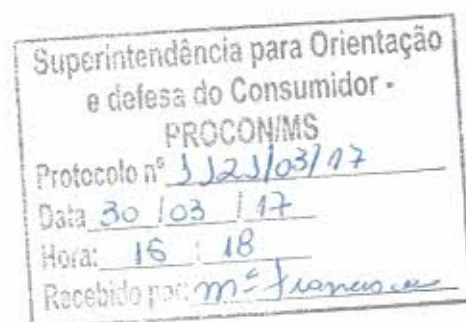 Superintendência para Orientação
e defesa do Consumidor -
PROCON/MS
Protocolo nº 1121/03/17
Data 30 / 03 / 17
Hora: 16 : 18
Recebido por: Mª Francisca